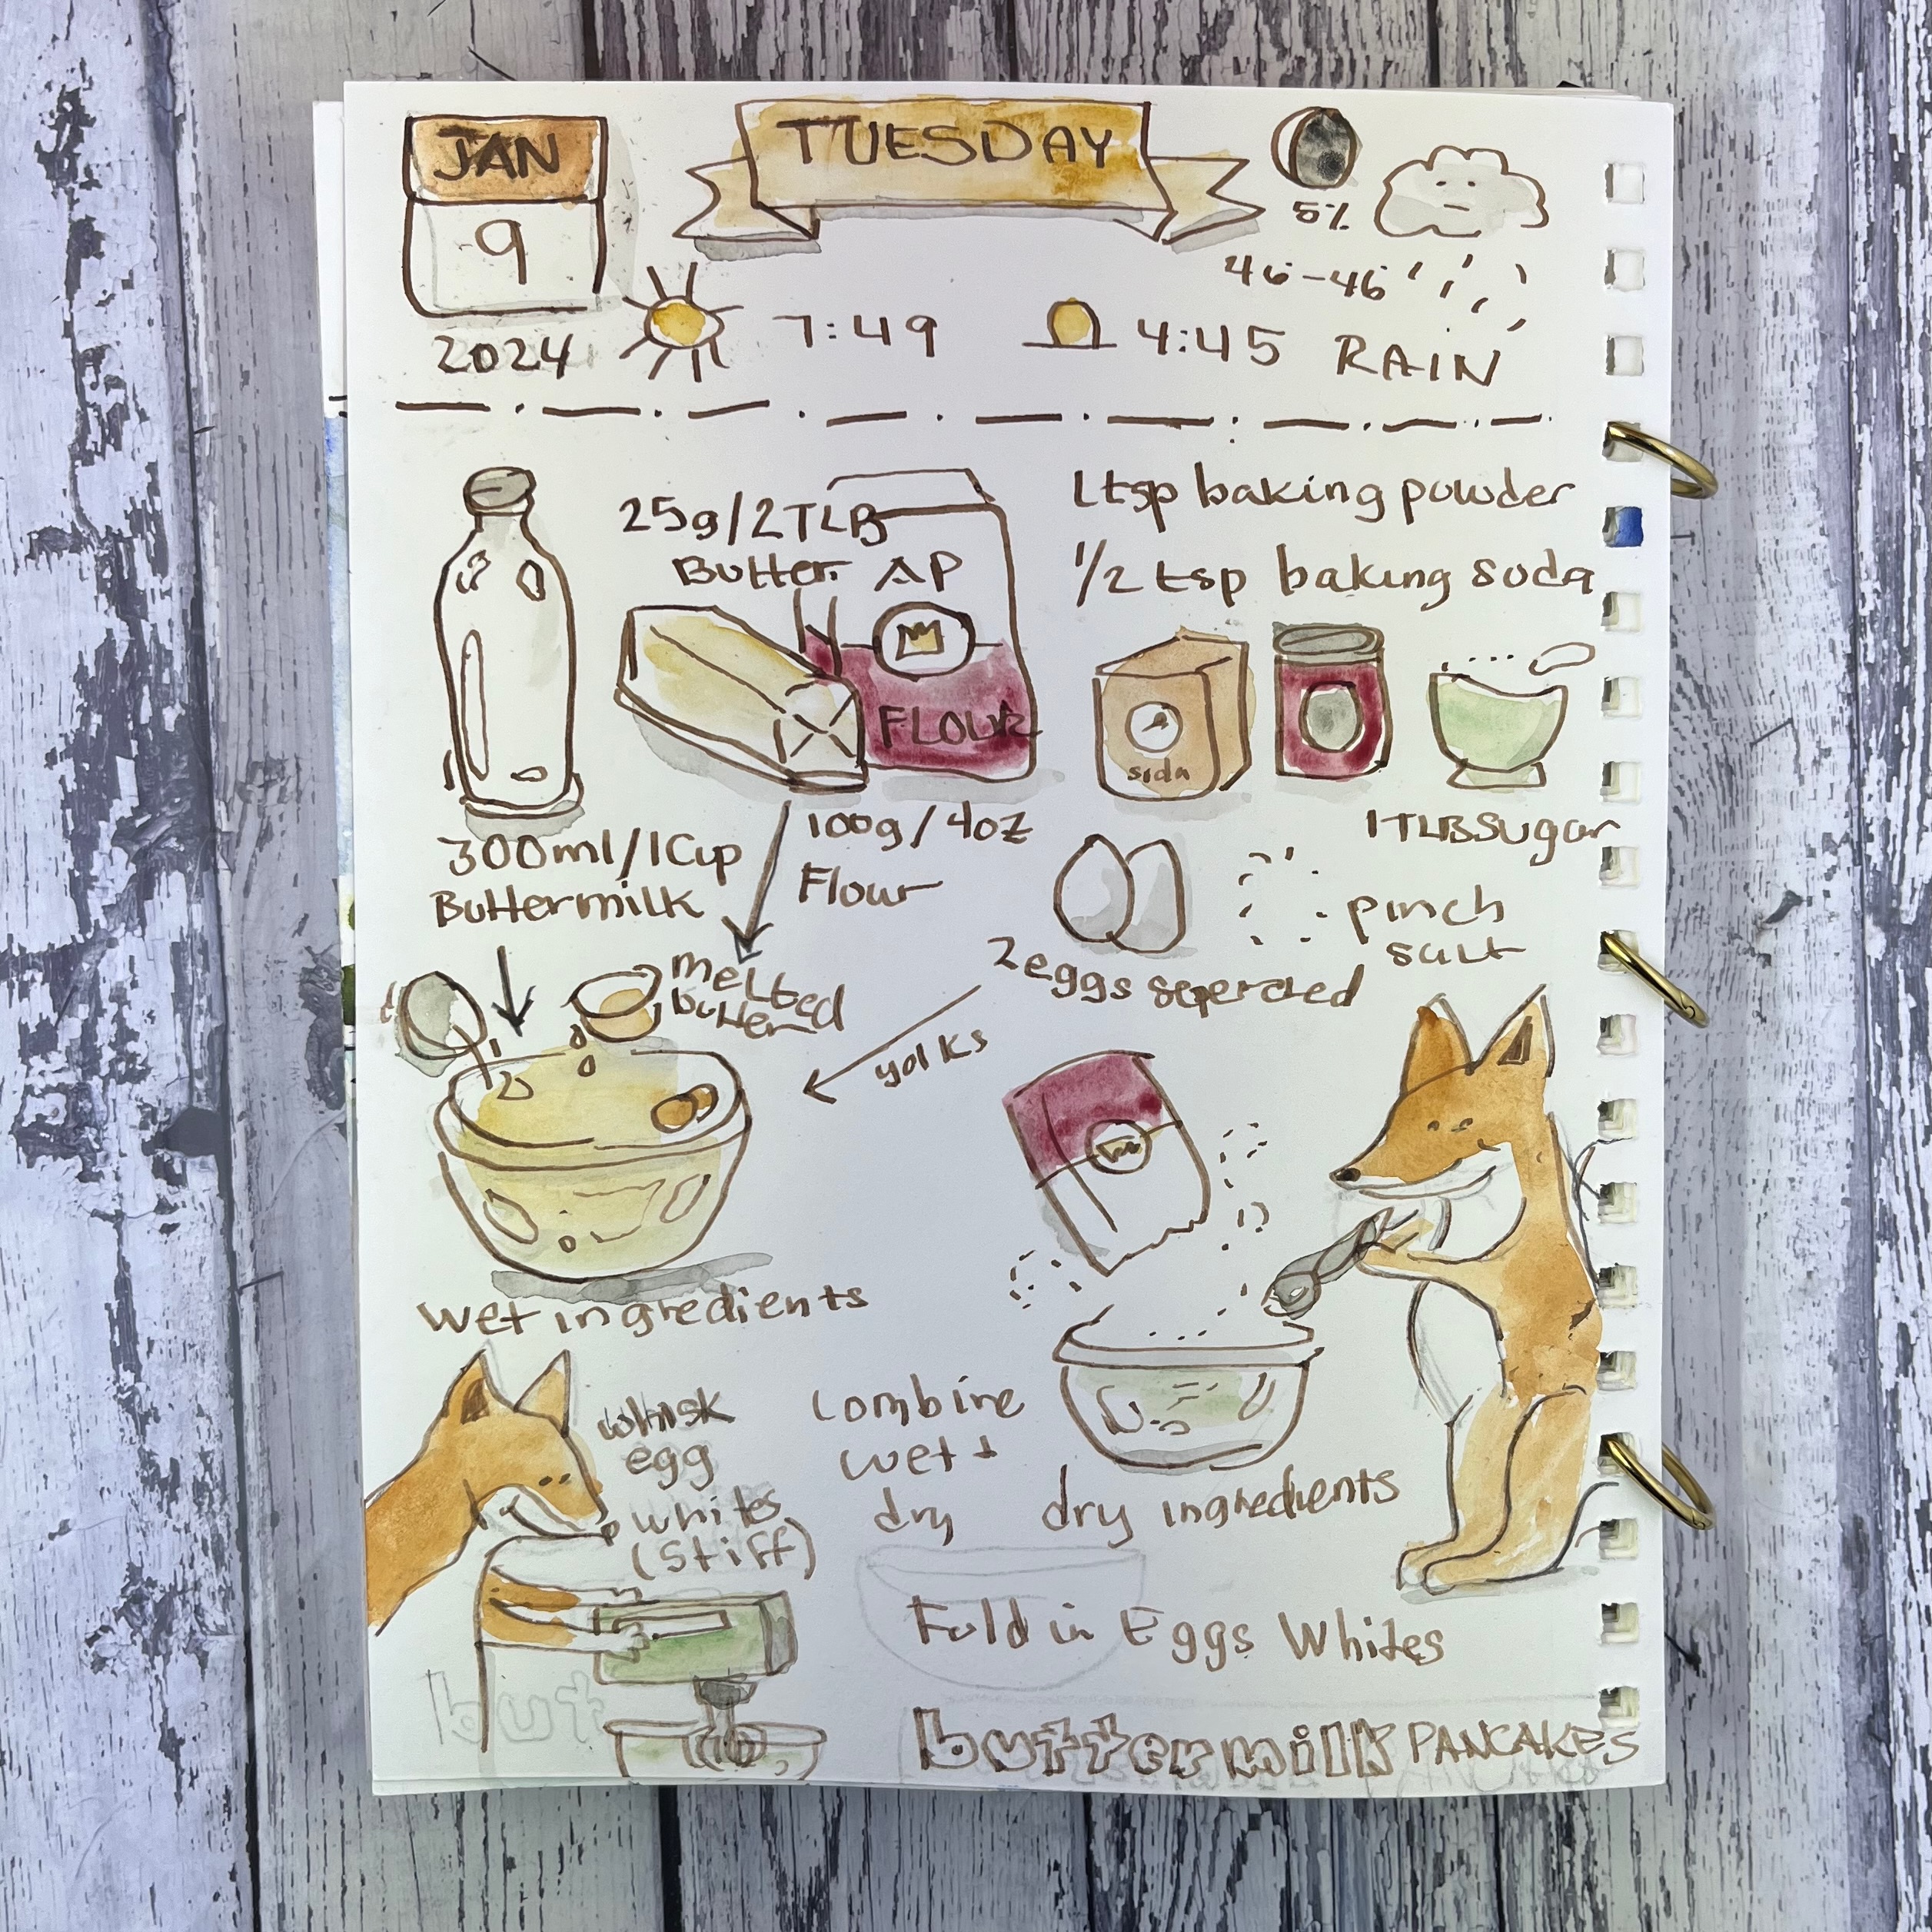 JAN
9
2024
TUESDAY
5%
46-46
7:49
4:45
RAIN
25g/2TLB
Butter
AP
FLOUR
1tsp baking powder
1/2 tsp baking soda
soda
300ml/1Cup
Buttermilk
100g/4oz
Flour
1TLBSugar
pinch
salt
2eggs seperated
melted
buttered
yolks
wet ingredients
whisk
egg
whites
(stiff)
combine
wet +
dry
dry ingredients
Fold in Eggs Whites
but
buttermilk PANCAKES